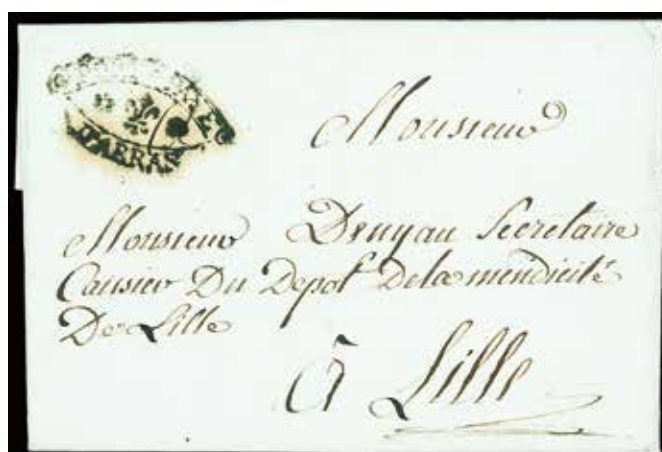 D'ARRAS
Monsieur
Monsieur Denyau Secretaire
Caissier Du Depot De la mendicité
De Lille
à Lille